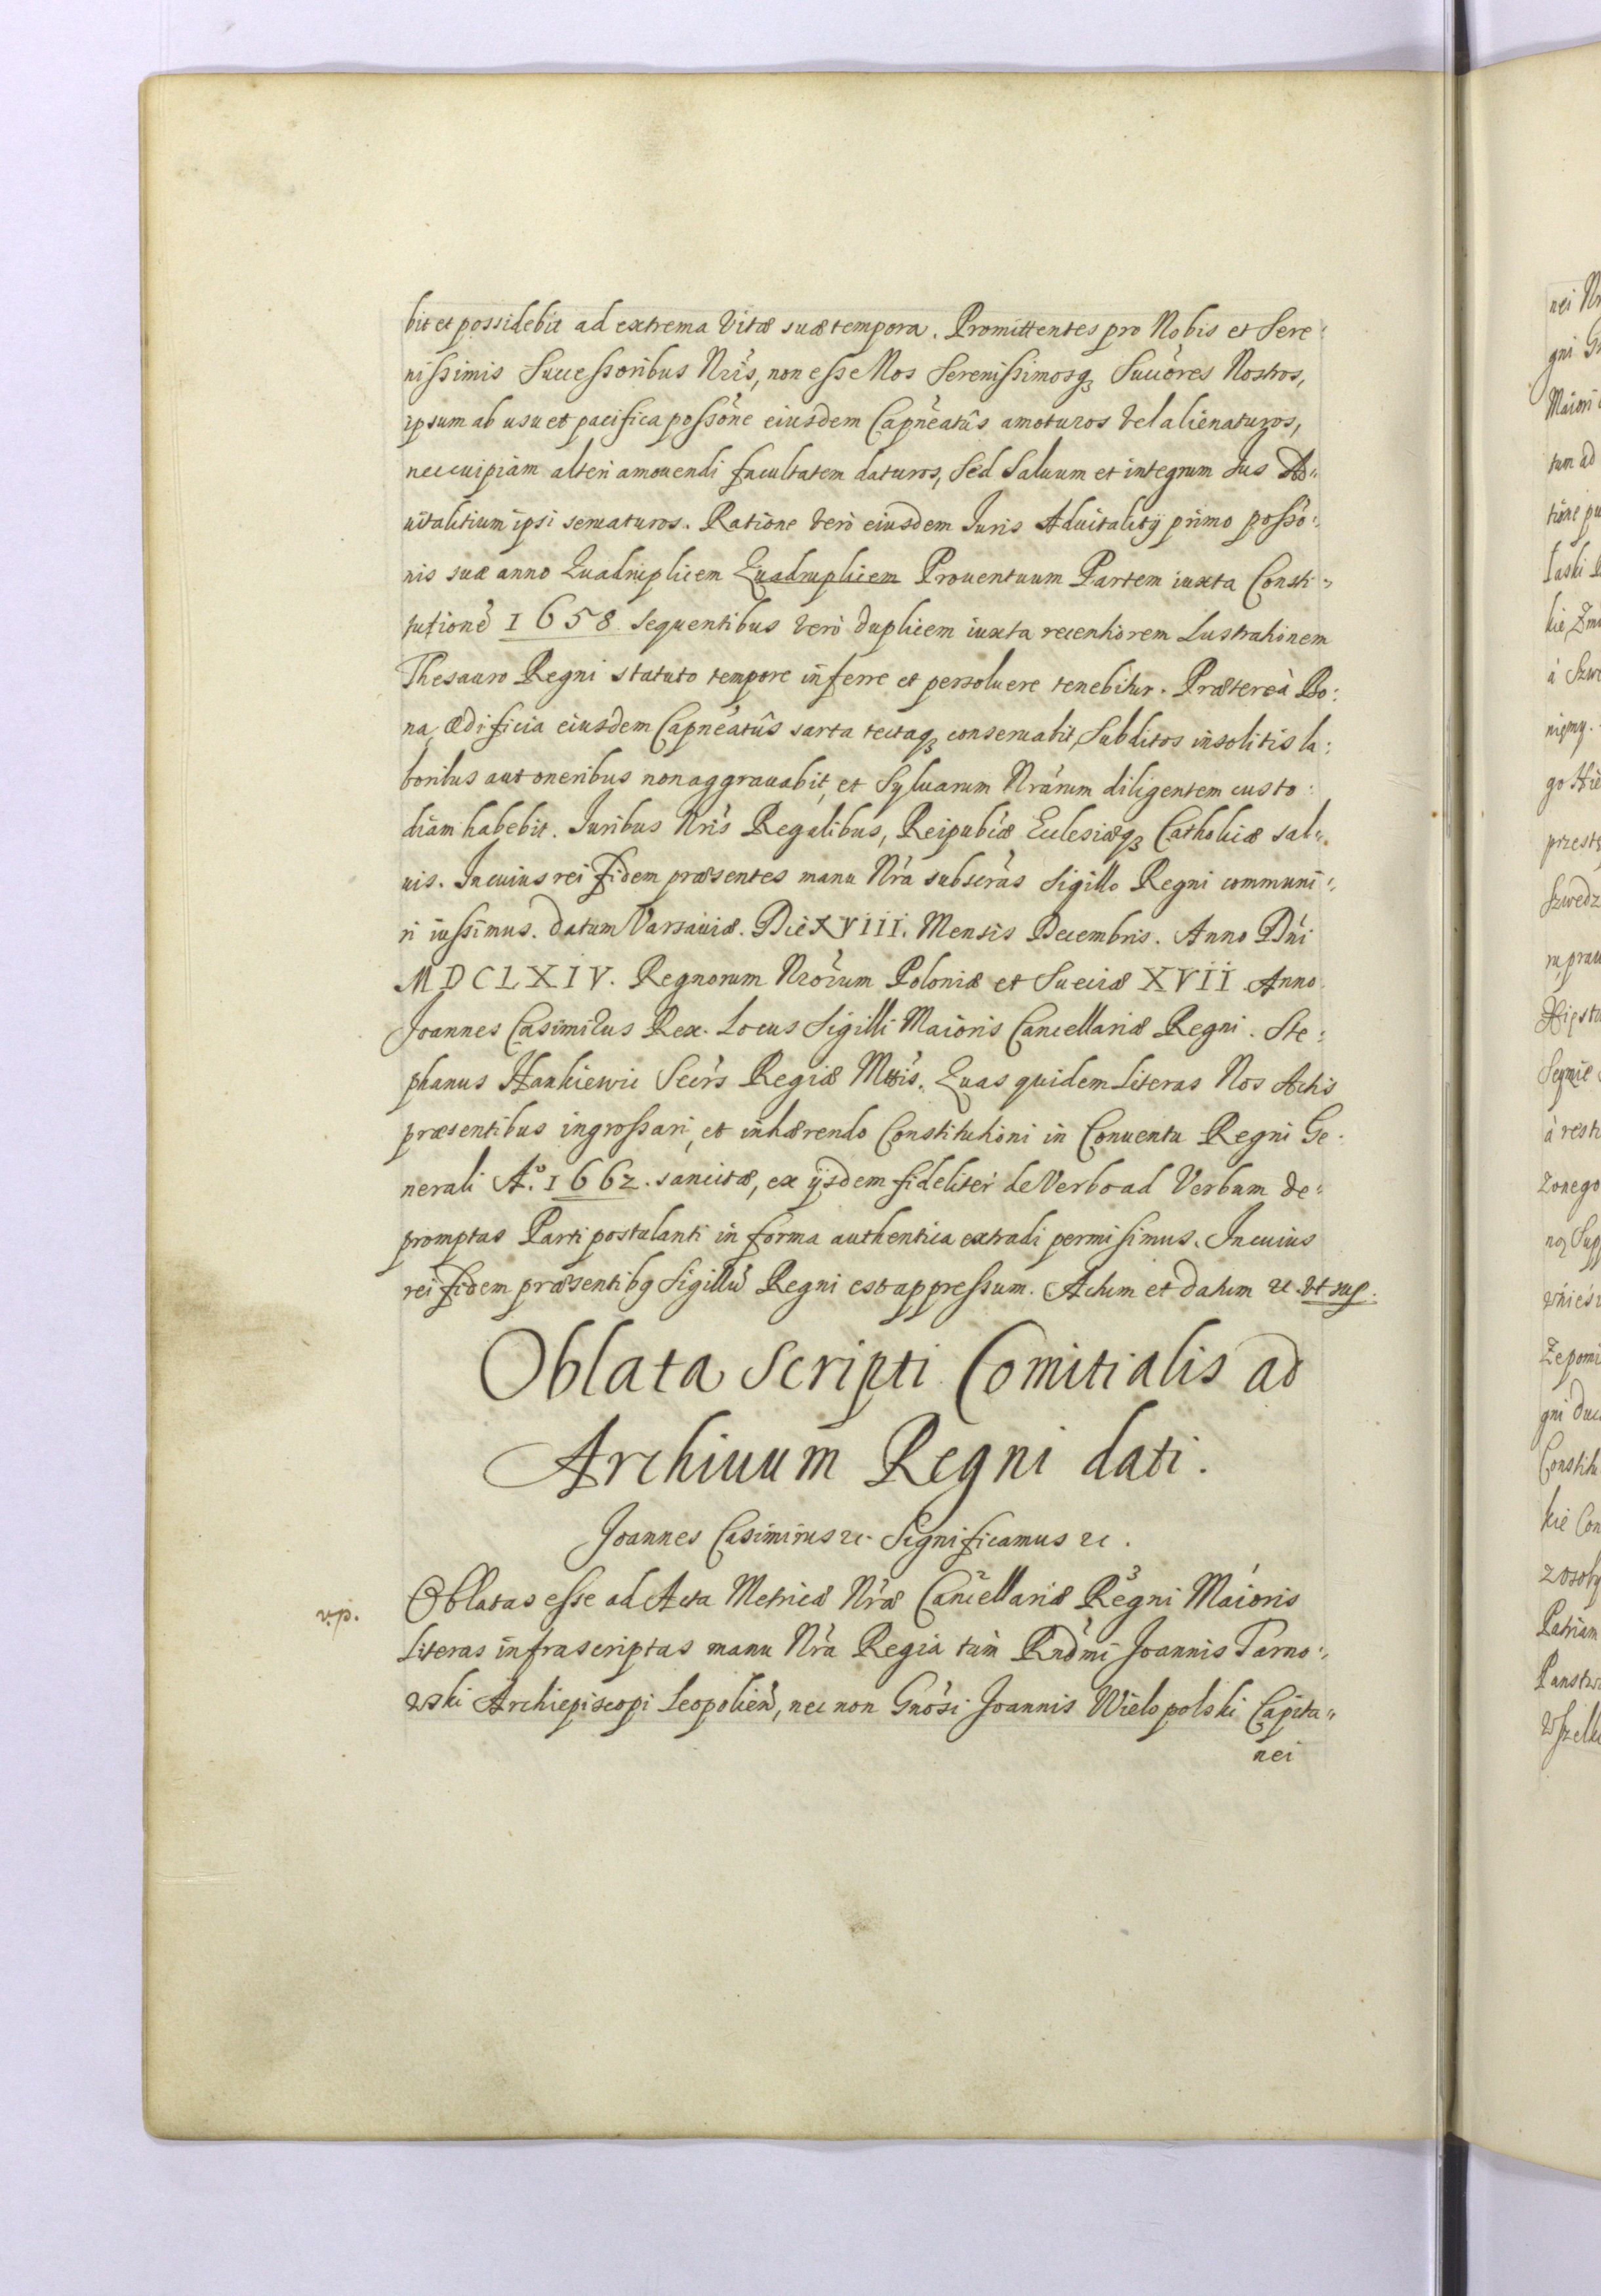 bit et possidebit ad extrema Vitæ suæ tempora. Promittentes pro Nobis et Sere:
nissimis Successoribus Nris, non esse Nos Serenissimosq3 Succores Nostros,
ipsum ab usu et pacifica possone eiusdem Capneatûs amoturos vel alienaturos,
nec cuipiam alteri amouendi facultatem daturos, Sed Saluum et integrum Jus Ad:
uitalitium ipsi seruaturos. Ratione verò eiusdem Juris Aduitalitij primo posso:
nis suæ anno Quadruplicem Quadruplicem Prouentuum Partem iuxta Consti:
tutione 1658 sequentibus verò duplicem iuxta recentiorem Lustrationem
Thesauro Regni statuto tempore inferre et persoluere tenebitur. Prætereà Bo:
na, ædificia eiusdem Capneatûs sarta tectaq3 conseruabit, Subditos insolitis la:
boribus aut oneribus non aggrauabit, et Syluarum Nrarum diligentem custo:
diam habebit. Juribus Nris Regalibus, Reipubcæ Ecclesiæq3 Catholicæ sal:
uis. In cuius rei fidem præsentes manu Nra subscras Sigillo Regni communi:
ri iussimus. Datum Varsauiæ. Die XVIII. Mensis Decembris. Anno Dni
MDCLXIV. Regnorum Nrorum Poloniæ et Sueciæ XVII Anno.
Joannes Casimirus Rex. Locus Sigilli Maioris Cancellariæ Regni. Ste:
phanus Hankiewic Secrs Regiæ Mttis. Quas quidem Literas Nos Actis
præsentibus ingrossari, et inhærendo Constitutioni in Conuentu Regni Ge:
nerali Ao. 1662. sancitæ, ex ijsdem fideliter de Verbo ad Verbum de:
promptas Parti postulanti in forma authentica extradi permisimus. In cuius
rei fidem præsentibq Sigillu Regni est appressum. Actum et datum etc. Vt sup.
Oblata Scripti Comitialis ad
Archiuum Regni dati.
Joannes Casimirus etc. Significamus etc.
v.p. Oblatas esse ad Acta Metricæ Nræ Cancellariæ Regni Maioris
Literas infrascriptas manu Nra Regia tam Rndmi Joannis Tarno:
wski Archiepiscopi Leopolien, nec non Gnosi Joannis Wielopolski Capita:
nei